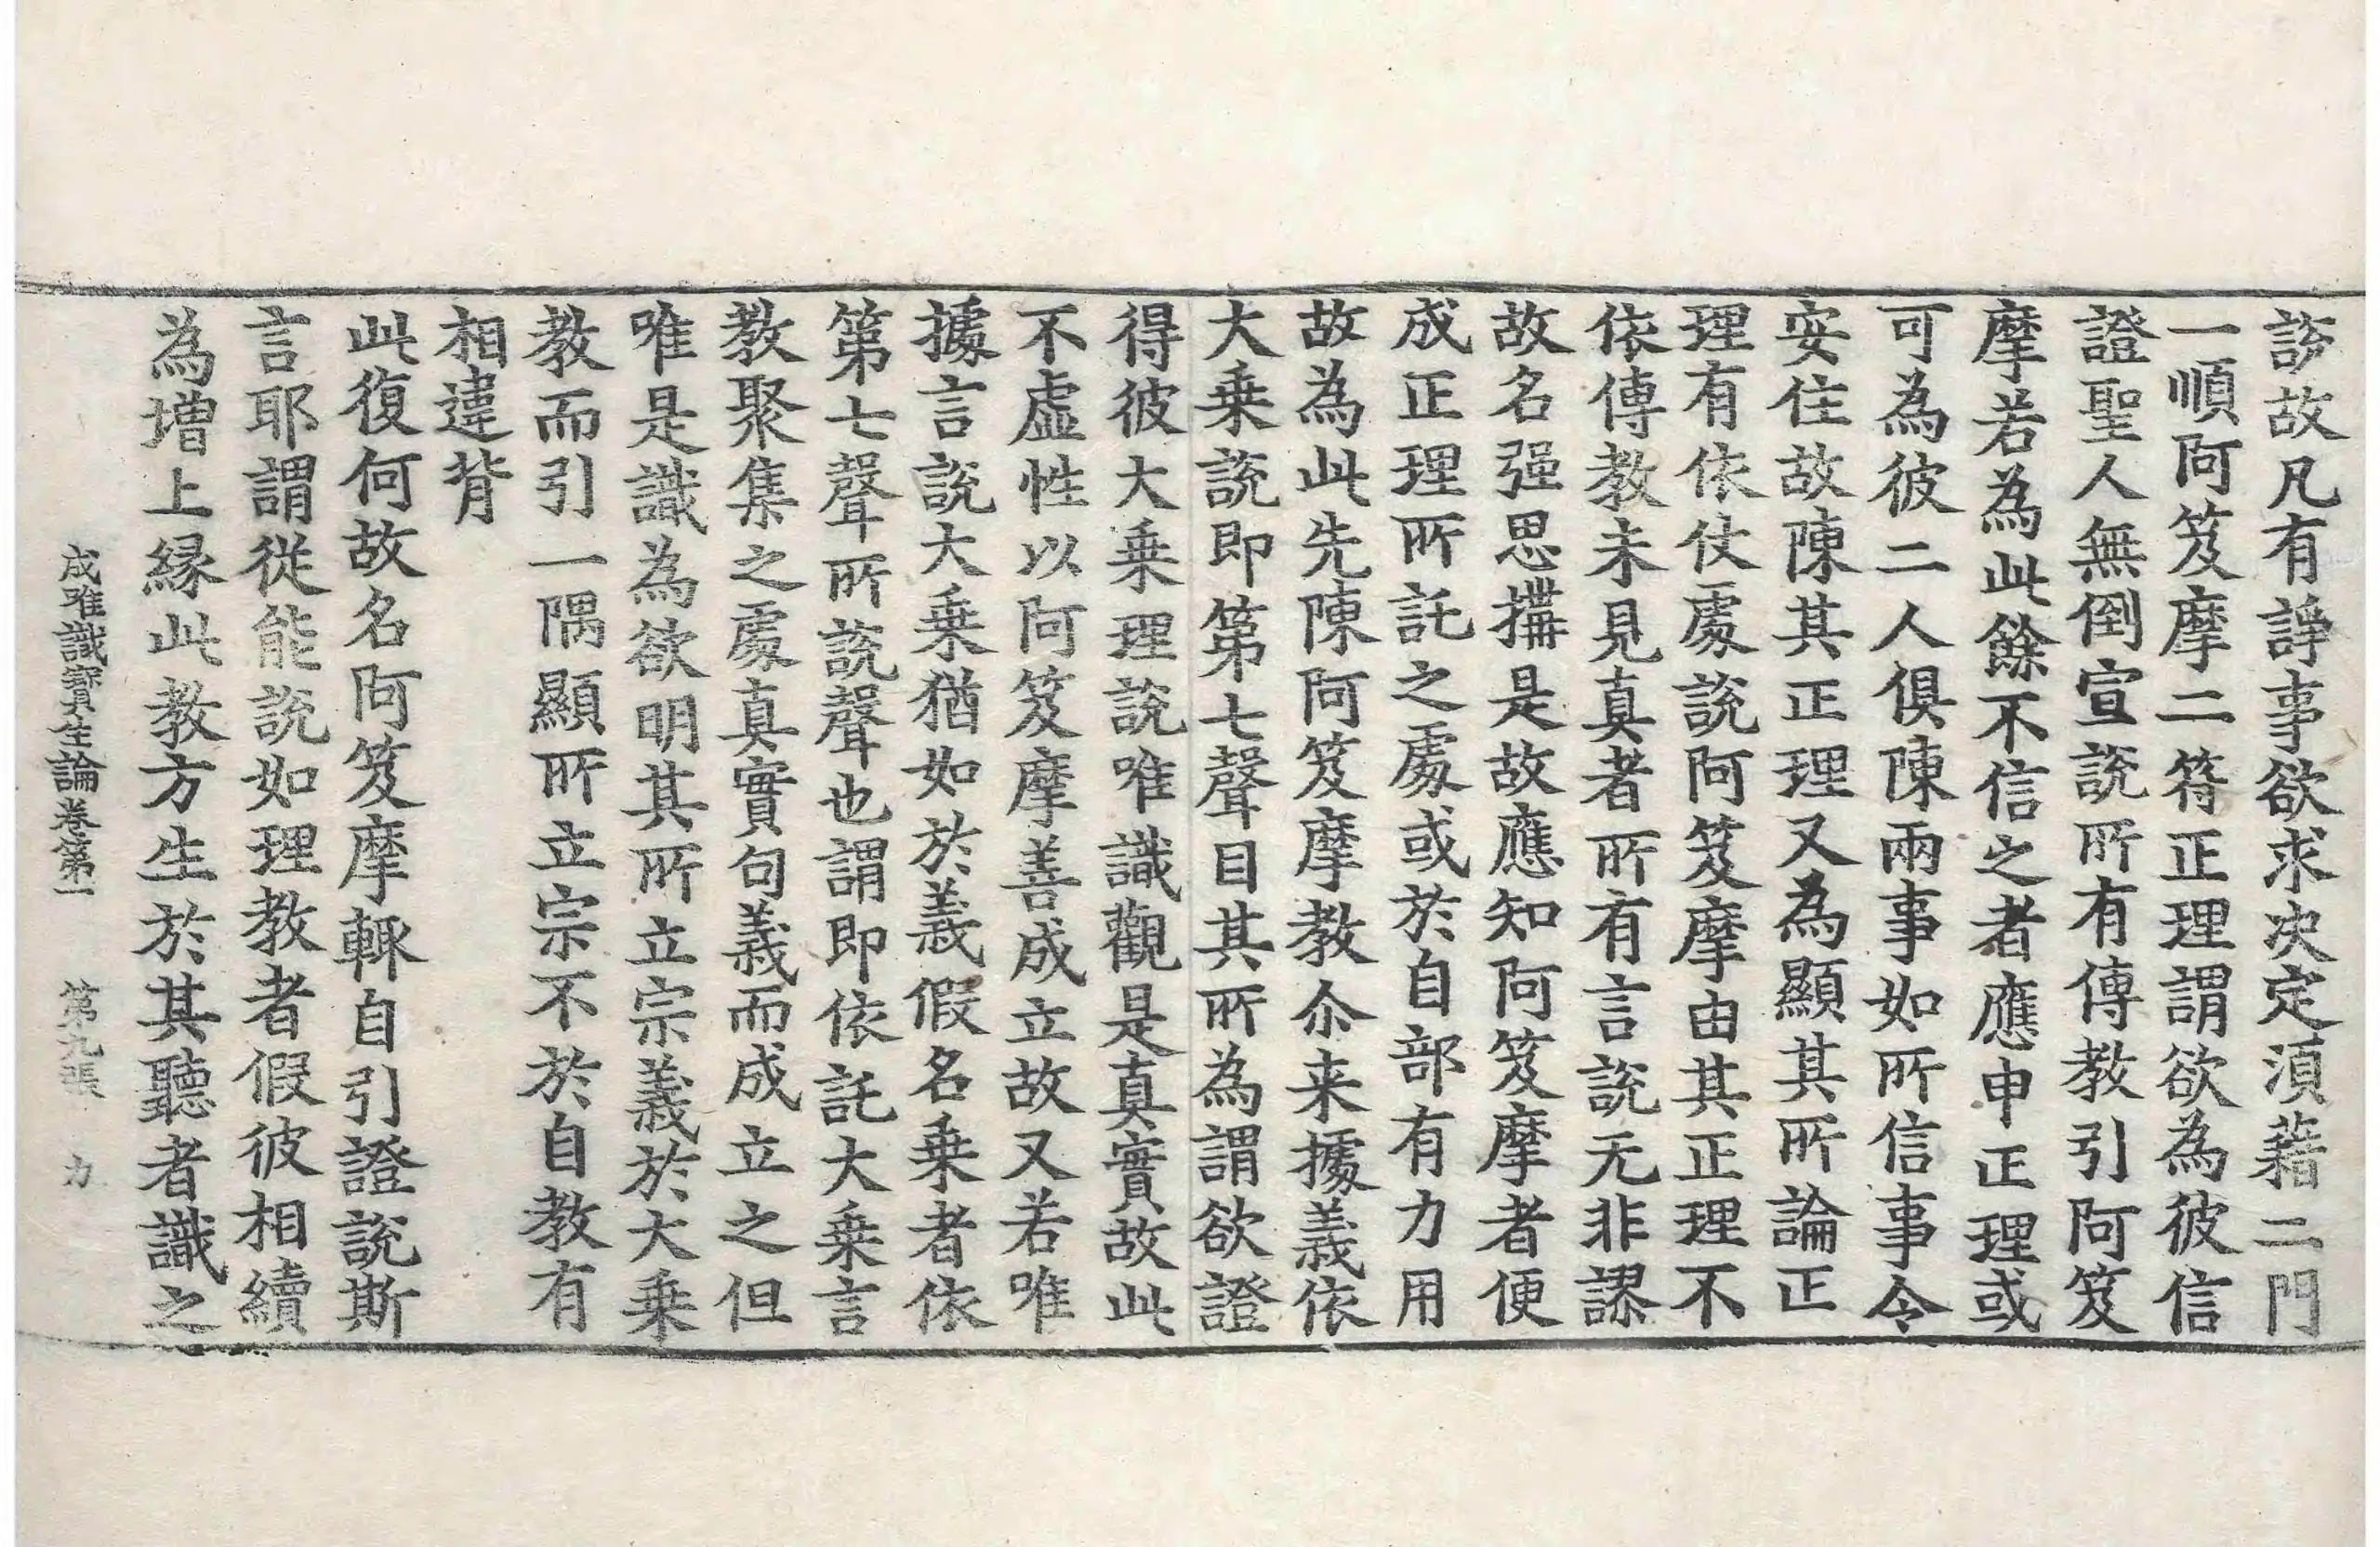 說故凡有諍事欲求决定湏藉二門
一順阿笈摩二符正理謂欲為彼信
證聖人無倒宣說所有傳教引阿笈
摩若為此餘不信之者應申正理或
可為彼二人俱陳兩事如所信事令
安住故陳其正理又為顯其所論正
理有依仗處說阿笈摩由其正理不
依傳教未見真者所有言說无非謬
故名强思搆是故應知阿笈摩者便
成正理所託之處或於自部有力用
故為此先陳阿笈摩教尒来據義依
大乗說即第七聲目其所為謂欲證
得彼大乗理說唯識觀是真實故此
不虛性以阿笈摩善成立故又若唯
據言說大乗猶如於義假名乗者依
第七聲所說聲也謂即依託大乗言
教聚集之處真實句義而成立之但
唯是識為欲明其所立宗義於大乗
教而引一隅顯所立宗不於自教有
相違背
此復何故名阿笈摩輙自引證說斯
言耶謂從能說如理教者假彼相續
為增上緣此教方生於其聽者識之
成唯識寶生論卷第一 第九張 力